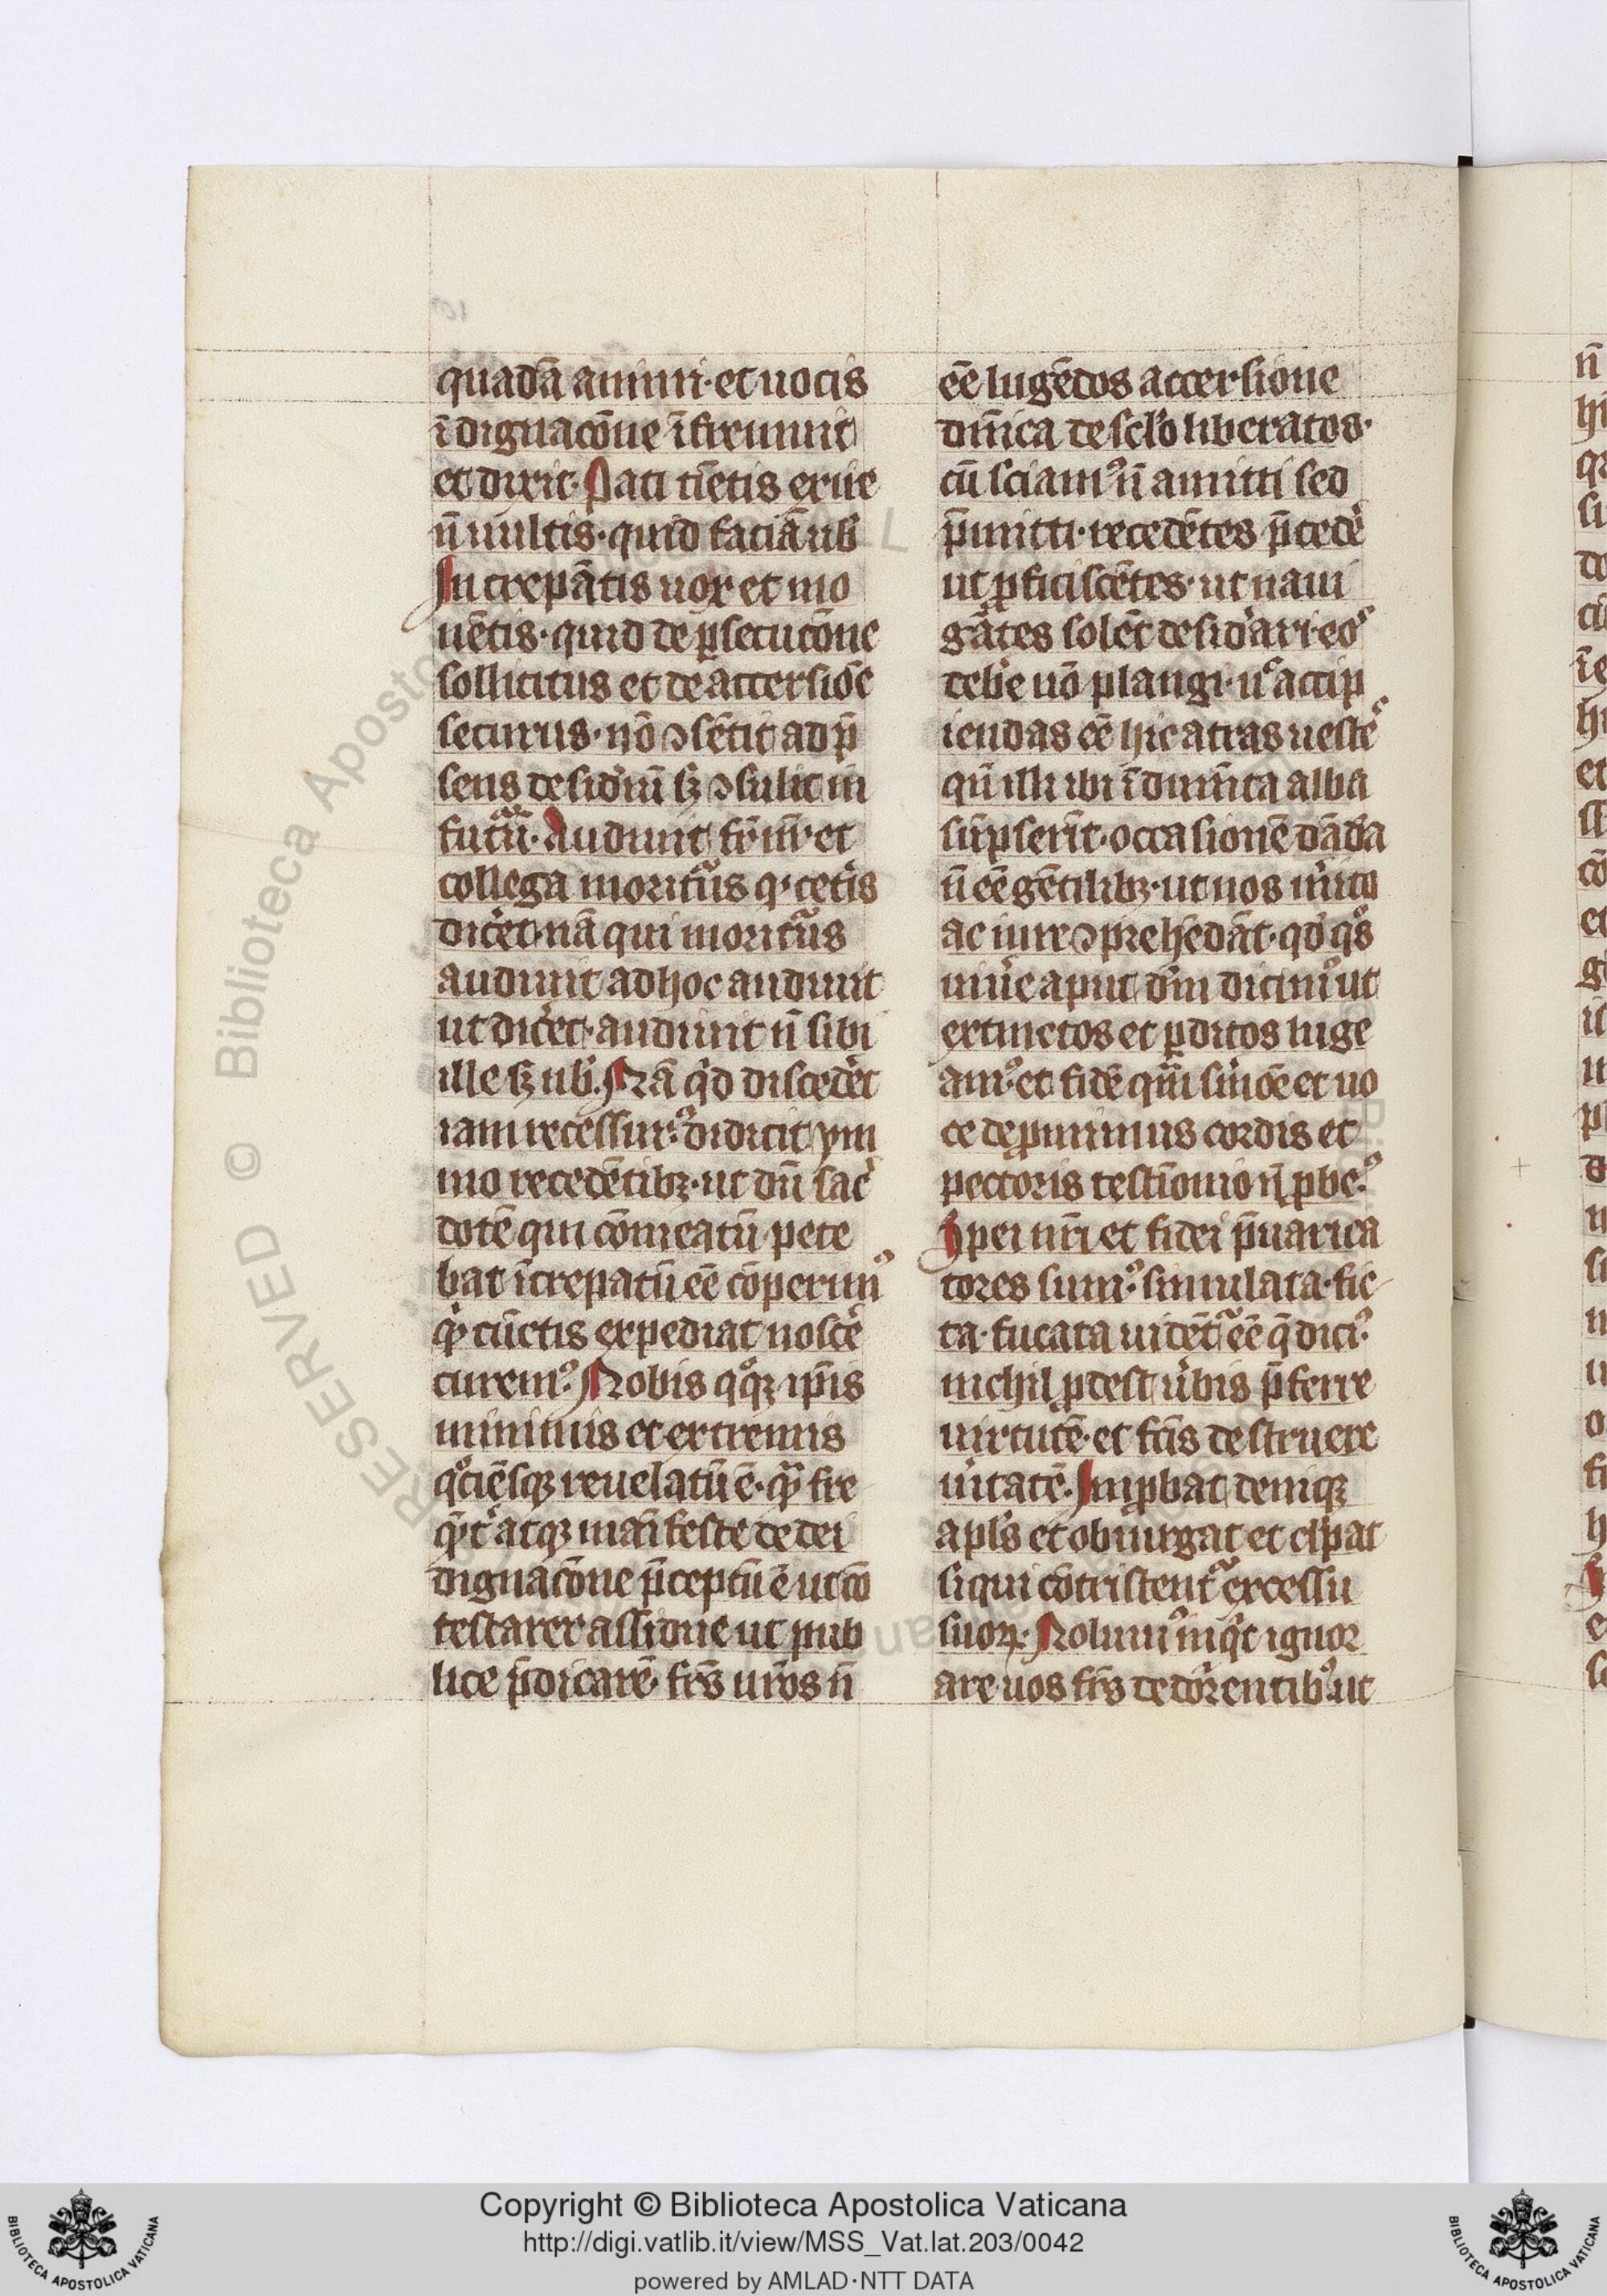 quadā animi·et uocis
ĩdignacōne ĩfremuit
et dixit·Pati tĩetis exire
n̄ uultis·quid faciā uob̄
Increpātis uox et mo
nētis·quid de ꝑsecucōne
sollicitus et de accersiōe
securus·nō ꝯsētit ad p̄
sens desid̾iũ sꝫ ꝯsulit in
futuͣrũ·Audiuit fr̄ nr̄ et
collega moritᷓus qͥ cet̾is
dic̾et·nā qui moritᷓus
audiuit ad hoc audiuit
ut dic̾et·audiuit n̄ sibi
ille sꝫ nob̾·Nā qͥd disced̾et
iam recessurꝰ didicit ym
mo recedētibꝫ·ut dũ sac̾
dotē qui cōmeatũ pete
bat ĩcrepatũ eē cōperimꝰ
qͥ cũctis expediat nosc̾e
curemꝰ·Nobis qͦqꝫ ip̄is
minimis et extremis
qͦciēsqꝫ reuelatũ ē·qͣ fre
qͣt̾ atqꝫ māifeste de dei
dignacōne p̄ceptũ ē ut cō
testarer assidue ut pub
lice p̄dicarē·fr̄s nr̄os n̄
eē lugēdos accersione
dn̄ica de sc̾lo liberatos·
cũ sciamꝰ n̄ amitti sed
p̄mitti·recedētes p̄ced̾e
ut ꝓficiscētes·ut naui
gātes solēt desid̾ari·eoˢ
deb̾e nō plangi·nͨ accip
iendas eē hic atras uesteˢ
qn̄ illi ibi ĩdumēta alba
sũpserĩt·occasionē dāda
n̄ eē gētilibꝫ·ut nos m̾ito
ac iure ꝯprehēdāt·qd̾ qͦs
uiu̾e aput dm̄ dicimꝰ ut
extinctos et ꝑditos luge
amꝰ·et fidē qͣm s̾mōe et uo
ce depͦmimus cordis et
pectoris testĩonio n̄ ꝓbeꝰ
Spei nr̄i et fidei p̄uarica
tores sumꝰ·simulata·fic
ta·fucata uidētᷓ eē q̄ diciꝰ
nichil ꝓdest u̾bis p̄ferre
uirtutē·et fc̄is destruere
u̾itatē·Imꝓbat deniqꝫ
apl̾s et obiurgat et cl̾pat
siqui cōtristentᷓ excessu
suoꝝ·Nolumꝰ inqͥt ignor
are uos fr̄s de dōr̾entibꝰ·ut
Copyright © Biblioteca Apostolica Vaticana
http://digi.vatlib.it/view/MSS_Vat.lat.203/0042
powered by AMLAD·NTT DATA